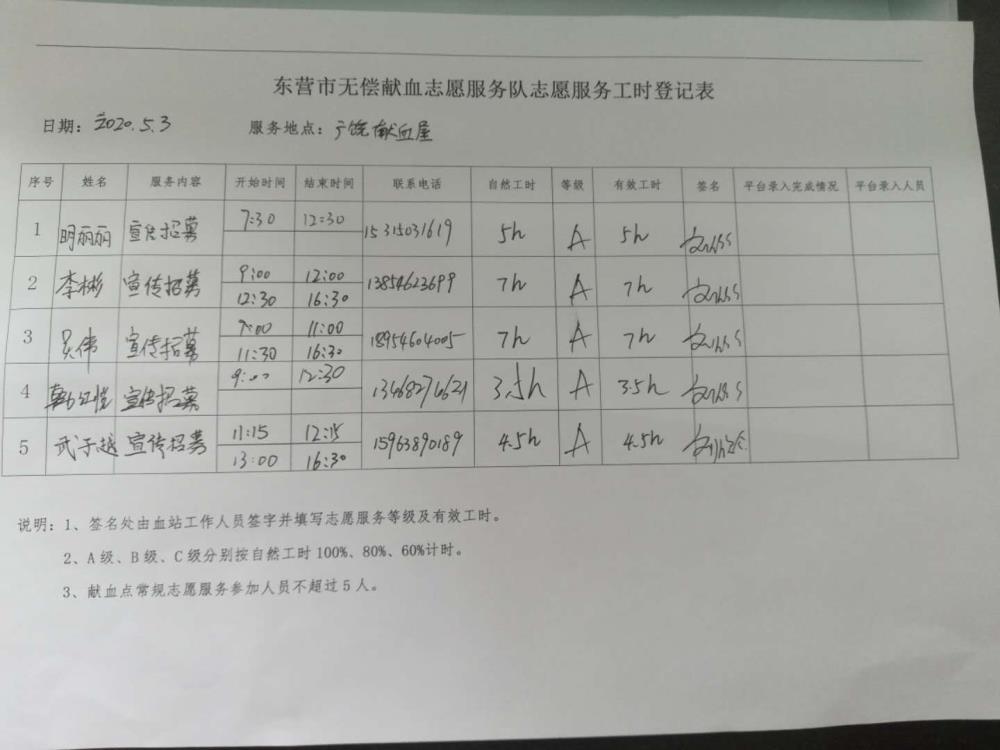 东营市无偿献血志愿服务队志愿服务工时登记表
日期：2020.5.3 服务地点：广饶献血屋
序号 姓名 服务内容 开始时间 结束时间 联系电话 自然工时 等级 有效工时 签名 平台录入完成情况 平台录入人员
1 明丽丽 宣传招募 7:30 12:30 15315031619 5h A 5h
2 李彬 宣传招募 9:00 12:00 13854623699 7h A 7h
12:30 16:30
3 吴伟 宣传招募 9:00 11:00 18954604005 7h A 7h
11:30 16:30
4 宣传招募 9:00 12:30 13468276621 3.5h A 3.5h
5 武子越 宣传招募 11:15 12:15 15963890189 4.5h A 4.5h
13:00 16:30
说明：1、签名处由血站工作人员签字并填写志愿服务等级及有效工时。
2、A级、B级、C级分别按自然工时100%、80%、60%计时。
3、献血点常规志愿服务参加人员不超过5人。